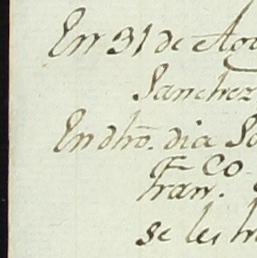 En 31 de Ago
Sanchez
En dho. dia Sa
Fran.co
se les h